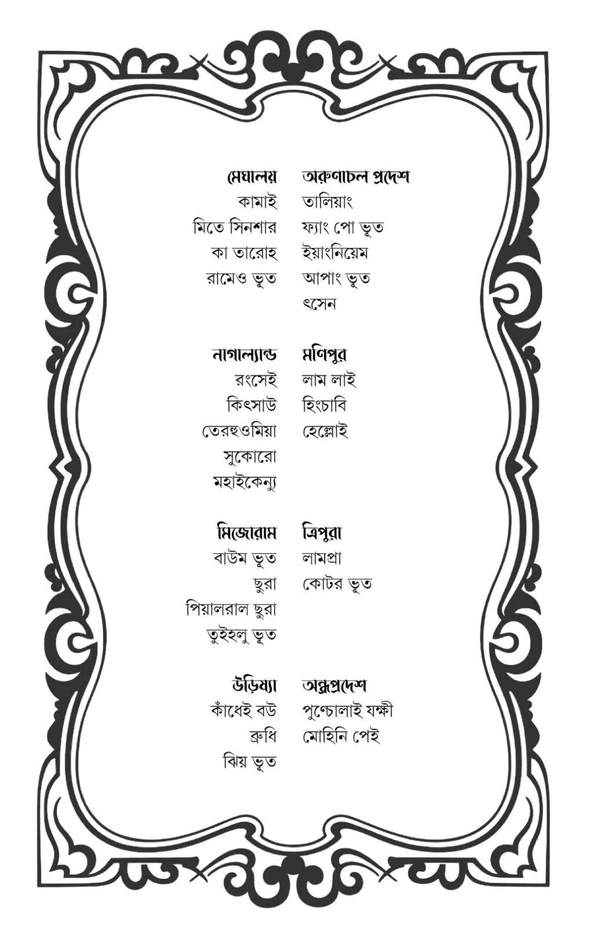 মেঘালয়
কামাই
মিতে সিনশার
কা তারোহ
রামেও ভূত
অরুণাচল প্রদেশ
তালিয়াং
ফ্যাং পো ভূত
ইয়াংনিয়েম
আপাং ভূত
ৎসেন
নাগাল্যান্ড
রংসেই
কিৎসাউ
তেরহুওমিয়া
সুকোরো
মহাইকেন্যু
মণিপুর
লাম লাই
হিংচাবি
হেল্লোই
মিজোরাম
বাউম ভূত
ছুরা
পিয়ালরাল ছুরা
তুইহলু ভূত
ত্রিপুরা
লামপ্রা
কোটর ভূত
উড়িষ্যা
কাঁধেই বউ
ব্রুধি
ঝিয় ভূত
অন্ধ্রপ্রদেশ
পুণ্চোলাই যক্ষী
মোহিনি পেই